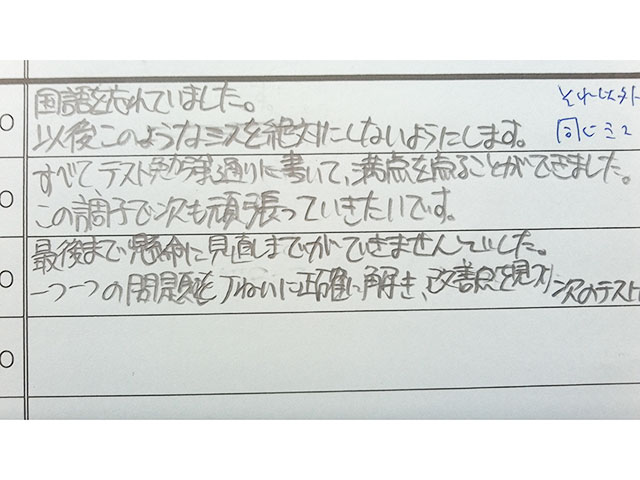 国語を忘れていました。
それ以外
以後このようなミスを絶対にしないようにします。
同じミス
すべて、テスト勉強通りに書いて、満点を点ることができました。
この調子で次も頑張っていきたいです。
最後まで懸命に見直しまでができませんでした。
一つ一つの問題を丁ねいに正確に解き、改善点を見つけ 次のテスト